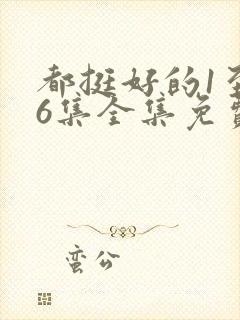 都挺好的1至
6集全集免费
蛮公